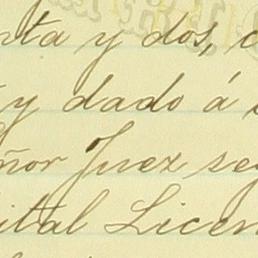 nta y dos, c
y dado á
ñor Juez seg
ital Licen